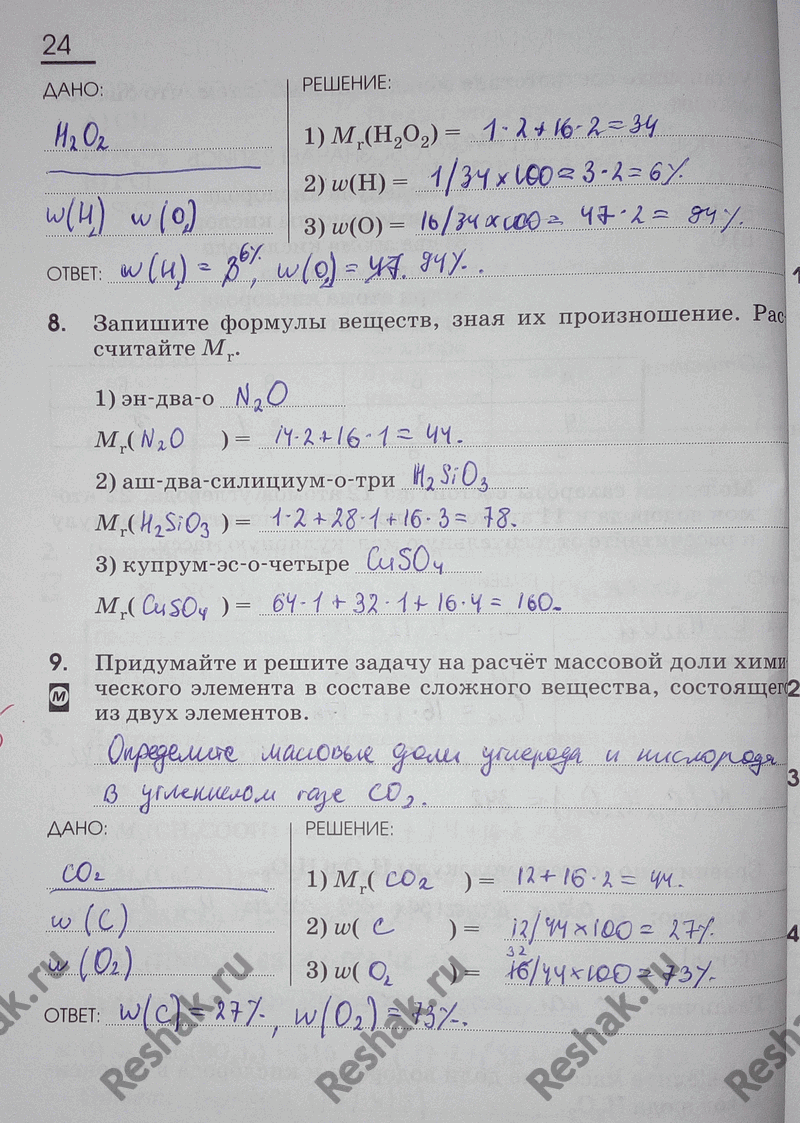 24
ДАНО:
РЕШЕНИЕ:
H₂O₂
1) Mr(H₂O₂) = 1·2+16·2=34
2) w(H) = 1/34×100=3·2=6%.
w(H₂) w(O₂)
3) w(O) = 16/34×100= 47·2= 94%.
ОТВЕТ: w(H₂) = 6%, w(O₂) = 94%.
8. Запишите формулы веществ, зная их произношение. Рас-
считайте Mr.
1) эн-два-о N₂O
Mr(N₂O) = 14·2+16·1=44.
2) аш-два-силициум-о-три H₂SiO₃
Mr(H₂SiO₃) = 1·2+28·1+16·3=78.
3) купрум-эс-о-четыре CuSO₄
Mr(CuSO₄) = 64·1+32·1+16·4=160.
9. Придумайте и решите задачу на расчёт массовой доли хими
М ческого элемента в составе сложного вещества, состоящего
из двух элементов.
Определите массовые доли углерода и кислорода
в углекислом газе CO₂.
ДАНО:
РЕШЕНИЕ:
CO₂
1) Mr(CO₂) = 12+16·2=44.
w(C)
2) w(C) = 12/44×100=27%.
w(O₂)
3) w(O₂) = 32/44×100=73%.
ОТВЕТ: w(C)=27%, w(O₂)=73%.
1
2
3
4
Reshak.ru
Reshak.ru
Reshak.ru
Reshak.ru